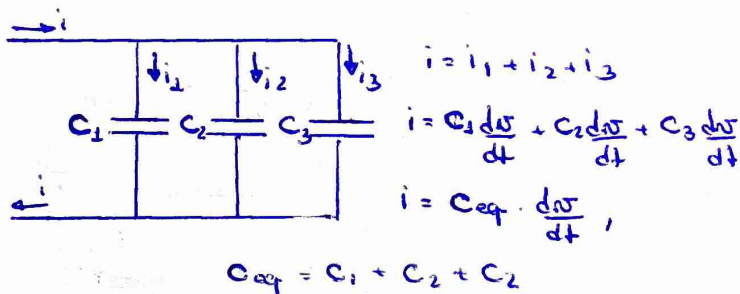 i
i₁ i₂ i₃
i = i₁ + i₂ + i₃
C₁ C₂ C₃
i = C₁ dv/dt + C₂ dv/dt + C₃ dv/dt
i
i = Ceq · dv/dt ,
Ceq = C₁ + C₂ + C₂